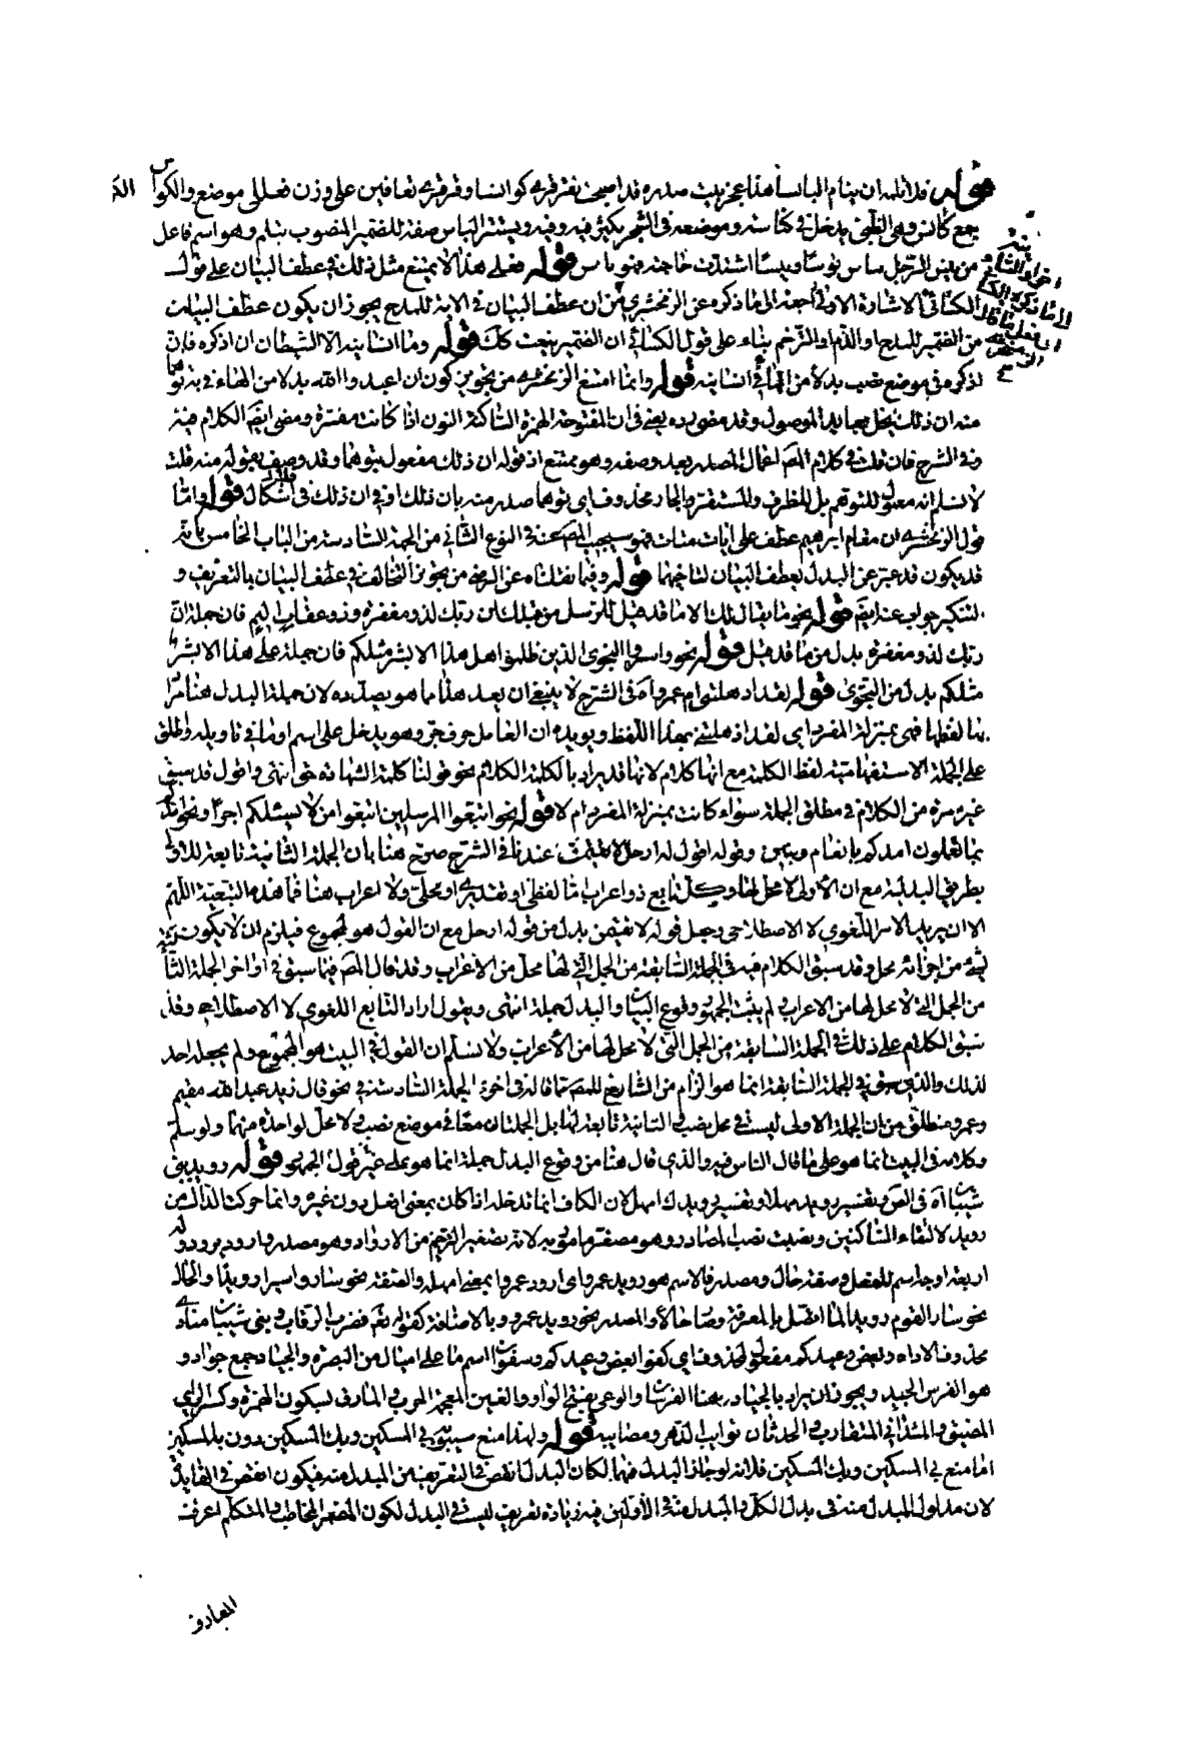 قوله فلا تلمه ان ينام البائسا هذا عجز بيت صدره قد اصبحت بقرقرى كوانسا وقرقرى تعافين على وزن فعللى موضع والكوانس
جمع كانس وهى الظبى يدخل في كناسه وموضعه فى الشجر يكتن فيه ويستتر البائس صفة للضمير المنصوب بتلمه وهو اسم فاعل
من بئس الرجل يبأس بؤسا وبئسا اشتدت حاجته فهو بائس قوله فعلى هذا لا يمتنع مثل ذلك في عطف البيان على قول
الكسائى الاشارة الاولى راجعة الى ما ذكره عن الزمخشرى من ان عطف البيان فى الاية للمدح يجوز ان يكون عطف البيان
من الضمير للمدح او الذم او الترحم بناء على قول الكسائى ان الضمير ينعت كذلك قوله وما انسانيه الا الشيطان ان اذكره فان
اذكره فى موضع نصب بدلا من الهاء في انسانيه قوله وانما امتنع الزمخشرى من تجويز كون ان اعبدوا الله بدلا من الهاء في به توهما
منه ان ذلك يخل بعائد الموصول وقد مضى رده يعنى فى ان المفتوحة الهمزة الساكنة النون اذا كانت مفسرة ومضى ايضا الكلام فيه
فى الشرح فان قلت في كلام المص اعمال المصدر بعد وصفه وهو ممتنع اذ قوله ان ذلك مفعول بتوهما وقد وصف بقوله منه قلت
لا نسلم انه معمول للتوهم بل للظرف والمستقر والجار محذوف اى توهما صدر منه بان ذلك او في ان ذلك فلا اشكال قوله واما
قول الزمخشرى ان مقام ابراهيم عطف على ايات بينات فهو سيجيب المص عنه في النوع الثانى من الجهة السادسة من الباب الخامس بانه
قد يكون قد عبر عن البدل بعطف البيان لتاخيهما قوله وفيما نقلناه عن الرضى من تجويز التخالف في عطف البيان بالتعريف و
التنكير جواب عنه ايضا قوله نحو ما يقال لك الا ما قد قيل للرسل من قبلك ان ربك لذو مغفرة وذو عقاب اليم فان جملة ان
ربك لذو مغفرة بدل من ما قد قيل قوله نحو واسروا النجوى الذين ظلموا هل هذا الا بشر مثلكم فان جملة هل هذا الا بشر
مثلكم بدل من النجوى قوله لقد اذهلتنى ام عمرو اه فى الشرح لا ينبغى ان يعد هذا مما هو بصدده لان جملة البدل هنا مراد
بها لفظها فهى بمنزلة المفرد اى لقد اذهلتنى بهذا اللفظ ويويده ان العامل حرف جر وهو يدخل على اسم او ما في تاويله واطلق
على الجملة الاستفهامية لفظ الكلمة مع انها كلام لانها قد يراد بالكلمة الكلام نحو قولنا كلمة الشهادة انتهى واقول قد سبق
غير مرة من الكلام في مطلق الجملة سواء كانت بمنزلة المفرد ام لا قوله نحو اتبعوا المرسلين اتبعوا من لا يسئلكم اجرا ونحو امدكم
بما تعلمون امدكم بانعام وبنين وقوله اقول له ارحل لا تقيمن عندنا فى الشرح صرح هنا بان الجملة الثانية تابعة للاولى
بطريق البدلية مع ان الاولى لا محل لها وكل تابع ذو اعراب اما لفظى او تقديرى او محلى ولا اعراب هنا فما هذه التبعية اللهم
الا ان يريد الامر اللغوى لا الاصطلاحى وجعل قوله لا تقيمن بدل من قوله ارحل مع ان القول هو المجموع فيلزم ان لا يكون
لشئ من اجزائه محل وقد سبق الكلام فيه فى الجملة السابقة من الجمل التى لها محل من الاعراب وقد قال المص فيما سبق في اواخر الجملة
من الجمل التى لا محل لها من الاعراب ولم يثبت الجمهور وقوع البيان والبدل جملة انتهى ونقول اراد التابع اللغوى لا الاصطلاحى وقد
سبق الكلام على ذلك في الجملة السابعة من الجمل التى لا محل لها من الاعراب ولا نسلم ان القول في البيت هو المجموع ولم يجعله احد
لذلك والذى سبق في الجملة السابعة انما هو الزام من الشارح للمص بما قاله فى اخر الجملة السادسة في نحو قال زيد عبد الله مقيم
وعمرو منطلق من ان الجملة الاولى ليست في محل نصب والثانية تابعة لها بل الجملتان معا في موضع نصب ولا محل لواحدة منهما ولو سلم
وكلامه فى البيت انما هو على ما قال الناس فيه والذى قال هنا من وقوع البدل جملة انما هو على غير قول الجمهور قوله رويد بنى
شيبان اه فى الص وتفسير رويد مهلا وتفسير رويدك امهل لان الكاف انما تدخله اذا كان بمعنى افعل دون غيره وانما حركت الدال من
رويد لالتقاء الساكنين ونصبت نصب المصادر وهو مصغر مامور به لانه تصغير الترخيم من الارواد وهو مصدر ارود يرود وله
اربعة اوجه اسم للفعل وصفة وحال ومصدر فالاسم هو رويد عمروا اى ارود عمروا بمعنى امهله والصفة نحو ساروا سيرا رويدا والحال
نحو سار القوم رويدا لما اتصل بالمعرفة وصار حالا والمصدر نحو رويد عمرو بالاضافة كقوله تعم فضرب الرقاب وبنى شيبان منادى
محذوف الاداة وبعض وعيدكم مفعول لمحذوف اى كفوا بعض وعيدكم وسفوان اسم ماء على اميال من البصرة والجياد جمع جواد و
هو الفرس الجيد ويجوز ان يراد بالجياد هنا الفرسان والوغى بفتح الواو والغين المعجمة الحرب والمأزق بسكون الهمزة وكسر الزاى
المضيق والمتدانى المتقارب والحدثان نوايب الدهر ومصايبه قوله ولهذا منع سيبويه بي المسكين وبك المسكين دون به المسكين
انما منع بي المسكين وبك المسكين فلانه لو جاز البدل فيهما لكان البدل انقص فى التعريف من المبدل منه فيكون انقص في الفايدة
لان مدلول المبدل منه فى بدل الكل والمبدل منه فى الاولين فيه زيادة تعريف ليست في البدل لكون الضمير المخاطب والمتكلم اعرف
المعارف